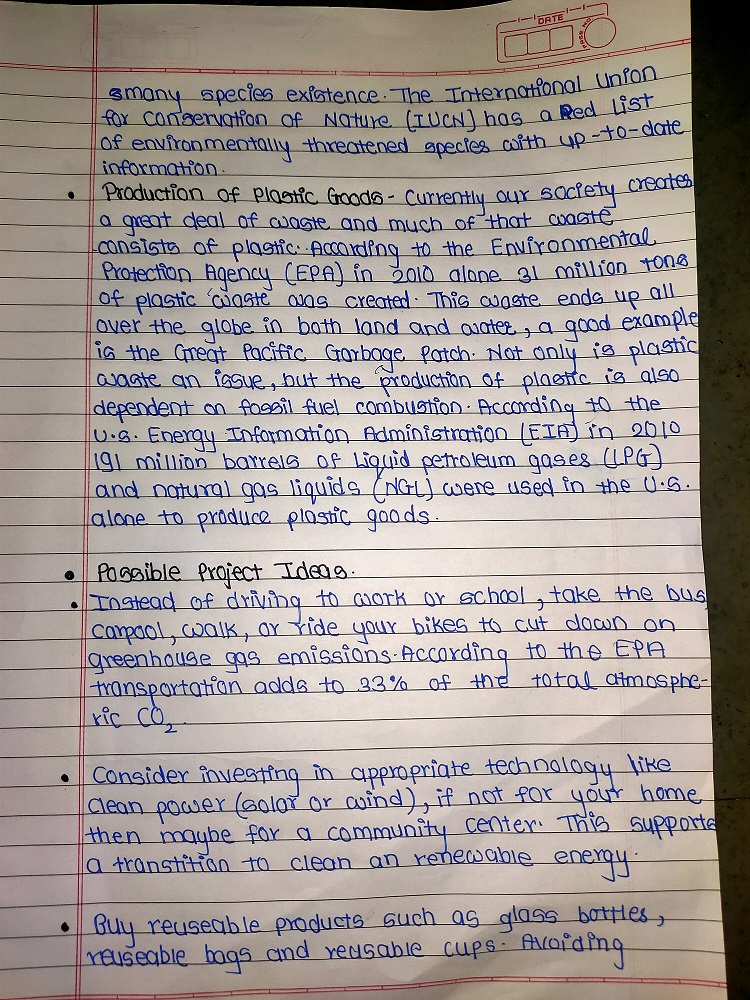 DATE
PAGE NO
smany species existence. The International Union
for Conservation of Nature (IUCN) has a Red list
of environmentally threatened species with up-to-date
information.
• Production of Plastic Goods - Currently our society creates
a great deal of waste and much of that waste
consists of plastic. According to the Environmental
Protection Agency (EPA) in 2010 alone 31 million tons
of plastic waste was created. This waste ends up all
over the globe in both land and water, a good example
is the Great Pacific Garbage Patch. Not only is plastic
waste an issue, but the production of plastic is also
dependent on fossil fuel combustion. According to the
U.S. Energy Information Administration (EIA) in 2010
191 million barrels of liquid petroleum gases (LPG)
and natural gas liquids (NGL) were used in the U.S.
alone to produce plastic goods.
• Possible Project Ideas.
• Instead of driving to work or school, take the bus,
carpool, walk, or ride your bikes to cut down on
greenhouse gas emissions. According to the EPA
transportation adds to 33% of the total atmosphe-
ric CO₂.
• Consider investing in appropriate technology like
clean power (solar or wind), if not for your home
then maybe for a community center. This supports
a transtition to clean an renewable energy.
• Buy reuseable products such as glass bottles,
reuseable bags and reusable cups. Avoiding